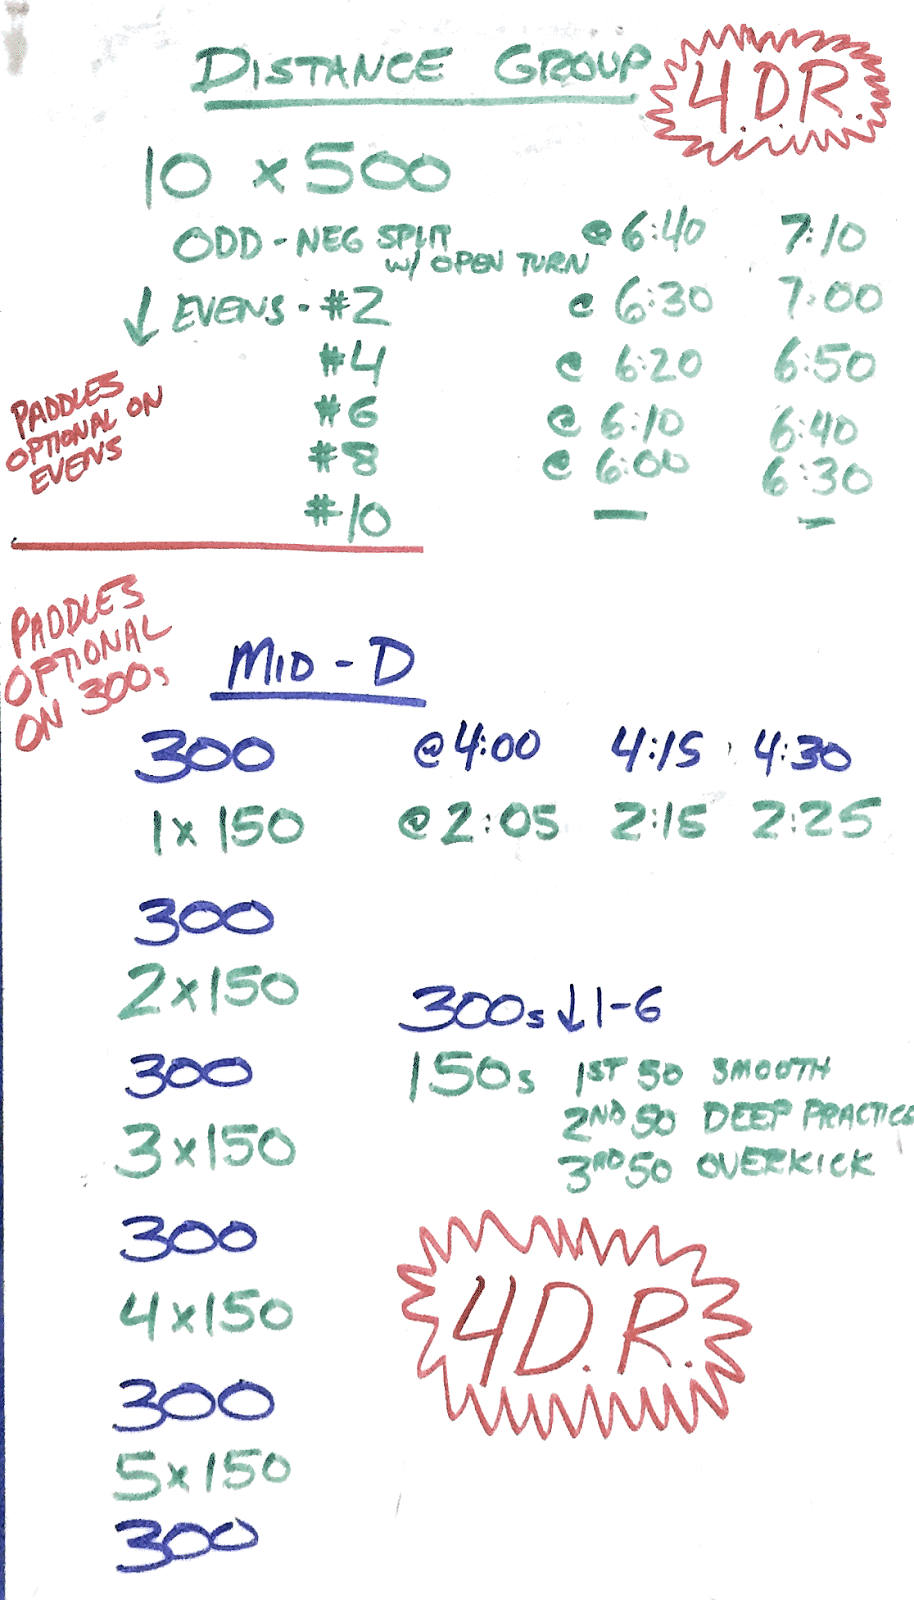 DISTANCE GROUP 4.D.R.
10 x 500
ODD - NEG SPLIT @ 6:40 7:10
w/ OPEN TURN
↓ EVENS - #2 @ 6:30 7:00
#4 @ 6:20 6:50
#6 @ 6:10 6:40
#8 @ 6:00 6:30
#10 — —
PADDLES
OPTIONAL ON
EVENS
PADDLES
OPTIONAL
ON 300s
MID - D
300 @ 4:00 4:15 4:30
1 x 150 @ 2:05 2:15 2:25
300
2 x 150
300
3 x 150
300
4 x 150
300
5 x 150
300
300s ↓ 1-6
150s 1ST 50 SMOOTH
2ND 50 DEEP PRACTICE
3RD 50 OVERKICK
4D.R.